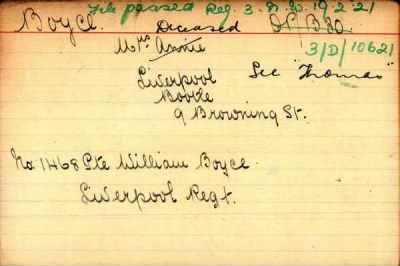 File passed Reg. 3. N.W. 19.2.21
Boyce. Deceased D.P.B 30
Mrs Annie 3/D/10621
Liverpool See "Thomas"
Bootle
9 Browning St.
No 11468 Pte William Boyce.
Liverpool Regt.